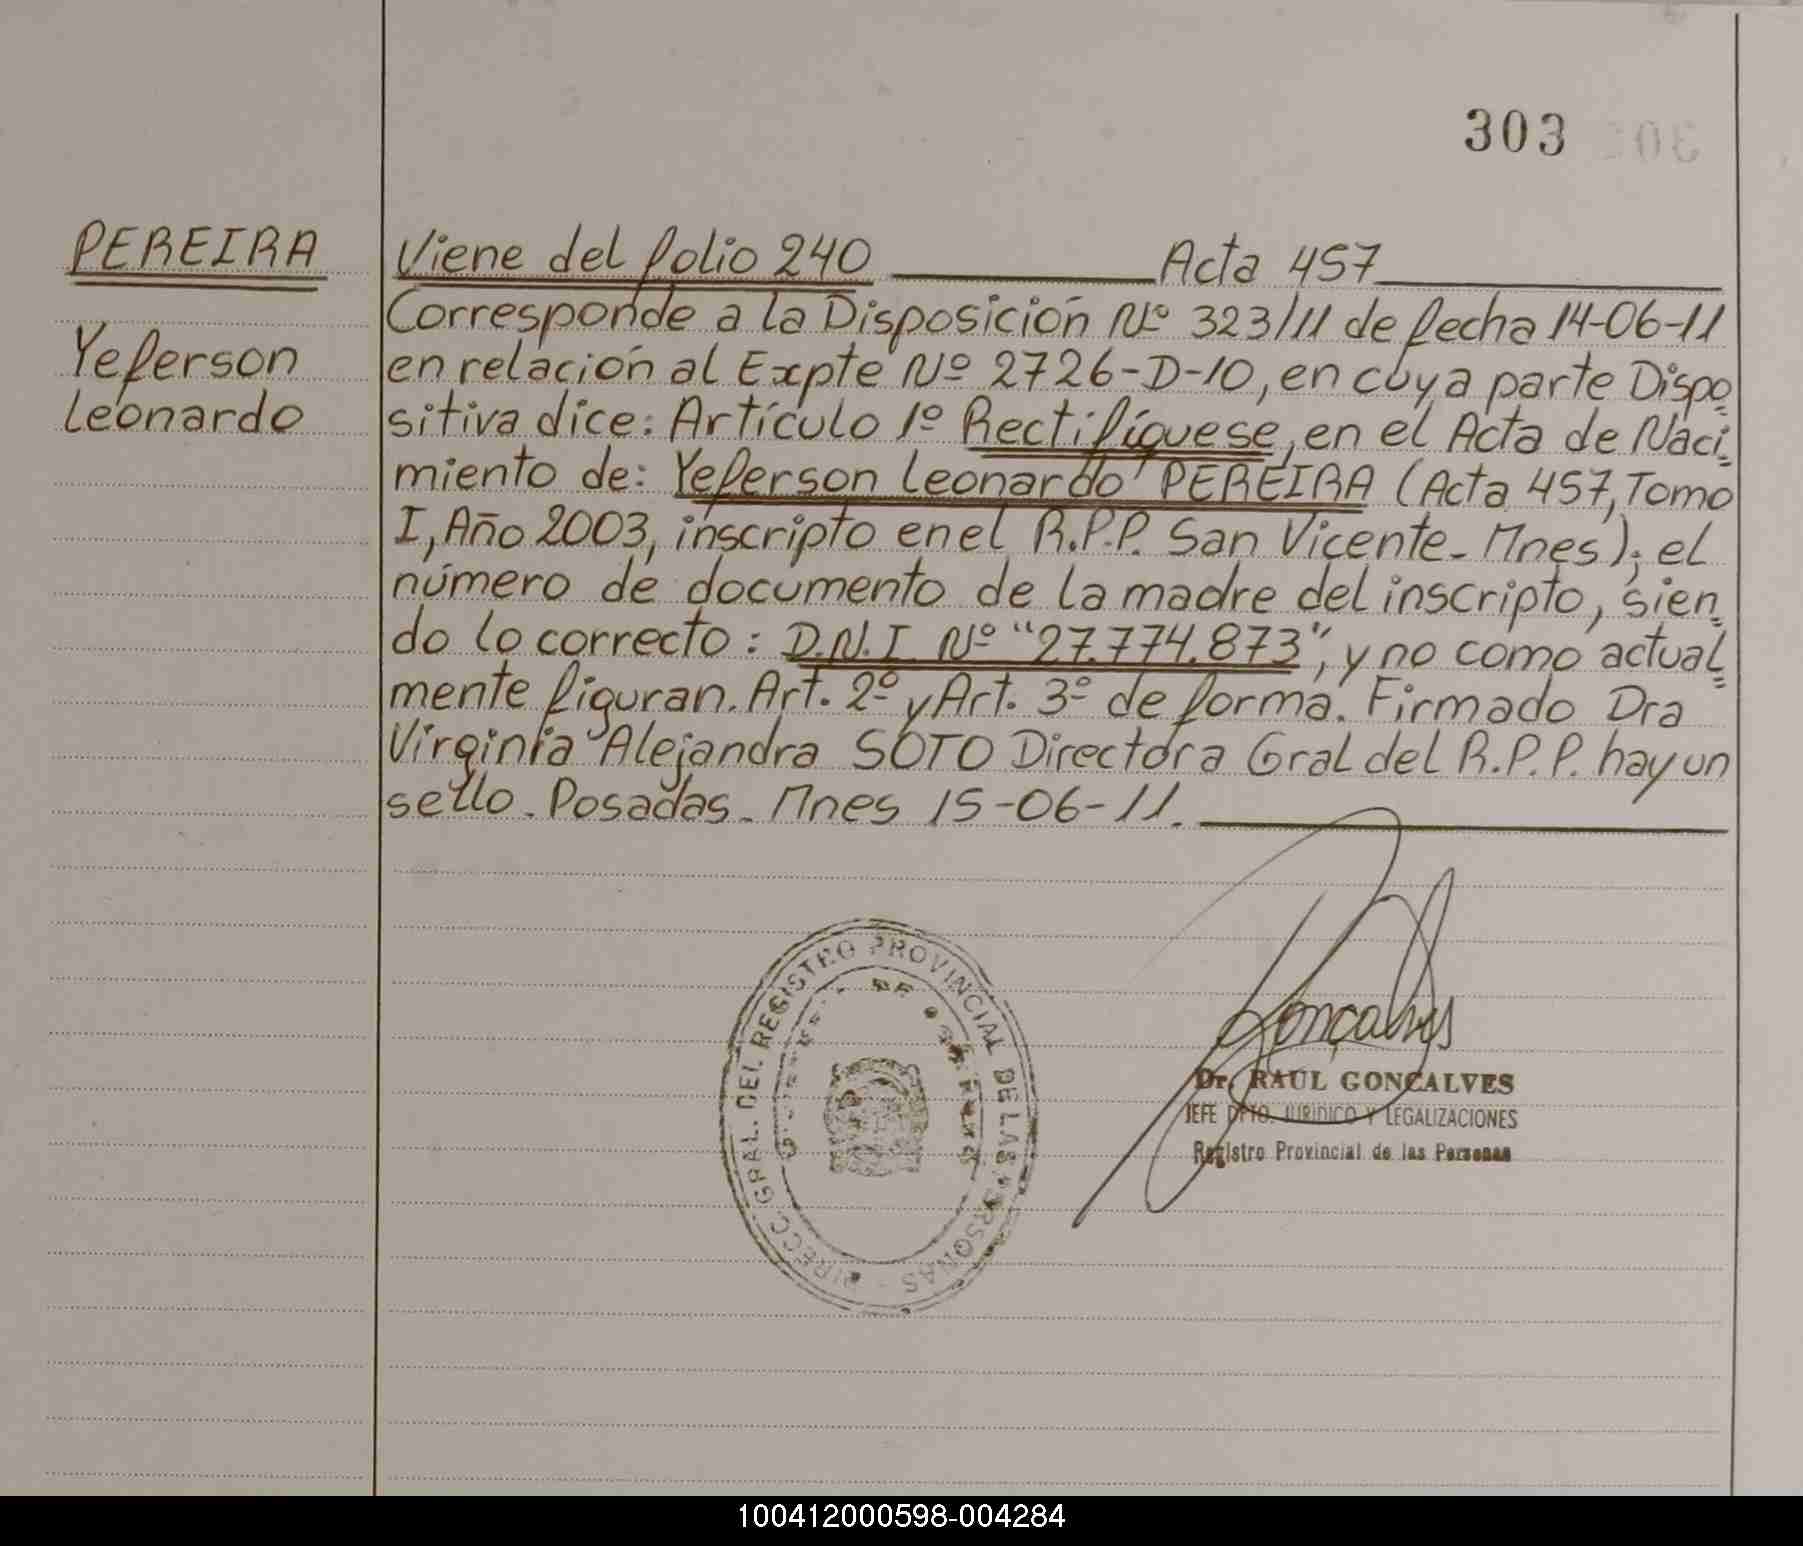 303
PEREIRA
Yeferson
Leonardo
Viene del folio 240 Acta 457
Corresponde a la Disposición Nº 323/11 de fecha 14-06-11
en relación al Expte Nº 2726-D-10, en cuya parte Dispo=
sitiva dice: Artículo 1º Rectifíquese, en el Acta de Naci=
miento de: Yeferson Leonardo PEREIRA (Acta 457, Tomo
I, Año 2003, inscripto en el R.P.P. San Vicente-Mnes); el
número de documento de la madre del inscripto, sien=
do lo correcto: D.N.I. Nº "27.774.873", y no como actual=
mente figuran. Art. 2º y Art. 3º de forma. Firmado Dra
Virginia Alejandra SOTO Directora Gral del R.P.P. hay un
sello. Posadas-Mnes 15-06-11.
DIRECC. GRAL. DEL REGISTRO PROVINCIAL DE LAS PERSONAS
Goncalves
Dr. RAUL GONCALVES
JEFE DPTO. JURIDICO Y LEGALIZACIONES
Registro Provincial de las Personas
100412000598-004284